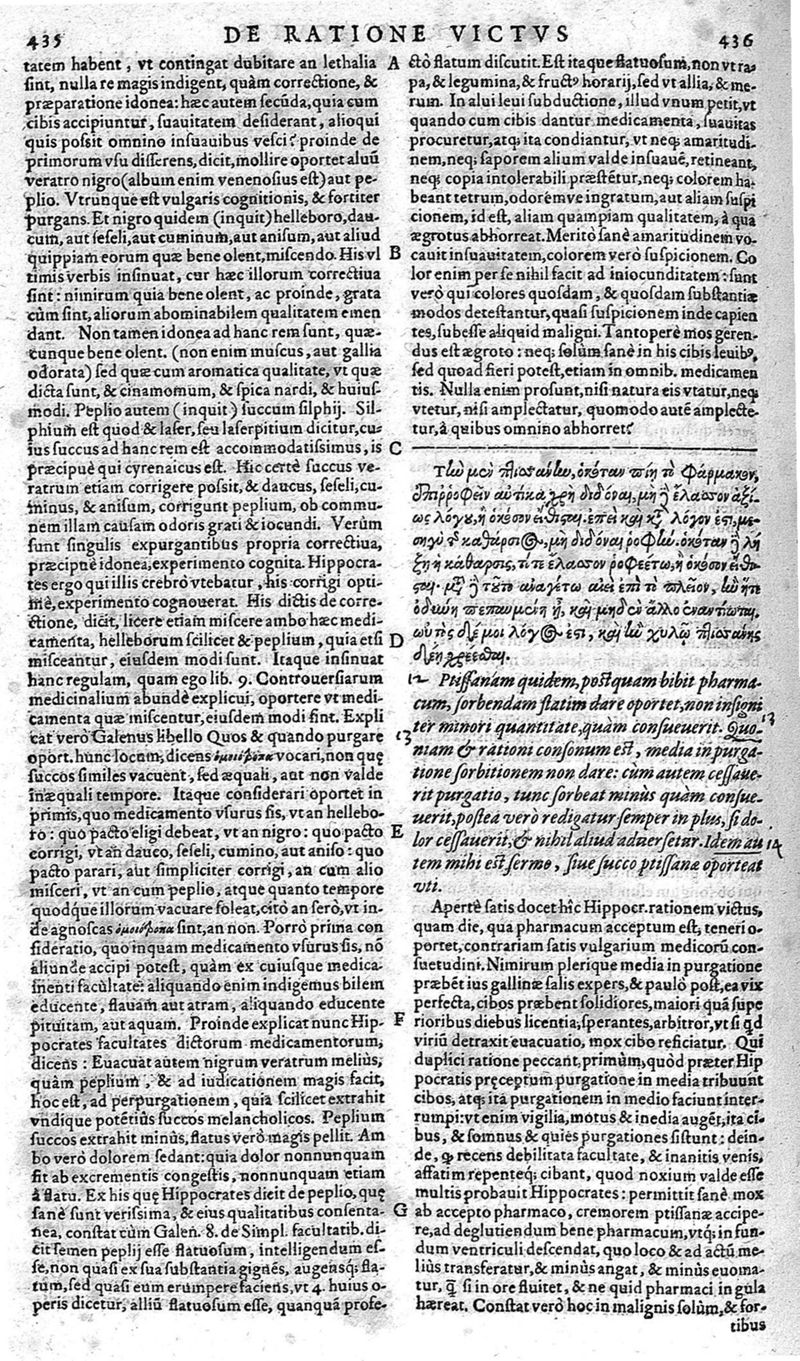 435
DE RATIONE VICTVS
436
tatem habent, vt contingat dubitare an lethalia
sint, nulla re magis indigent, quàm correctione, &
præparatione idonea: hæc autem secūda, quia cum
cibis accipiuntur, suauitatem desiderant, alioqui
quis possit omnino insuauibus vesci? proinde de
primorum vsu disserens, dicit, mollire oportet aluū
veratro nigro (album enim venenosius est) aut pe-
plio. Vtrunque est vulgaris cognitionis, & fortiter
purgans. Et nigro quidem (inquit) helleboro, dau-
cum, aut seseli, aut cuminum, aut anisum, aut aliud
quippiam eorum quæ bene olent, miscendo. His vl
timis verbis insinuat, cur hæc illorum correctiua
sint: nimirum quia bene olent, ac proinde, grata
cùm sint, aliorum abominabilem qualitatem emen
dant. Non tamen idonea ad hanc rem sunt, quæ-
cunque bene olent. (non enim muscus, aut gallia
odorata) sed quæ cum aromatica qualitate, vt quæ
dicta sunt, & cinamomum, & spica nardi, & huius-
modi. Peplio autem (inquit) succum silphij. Sil-
phium est quod & laser, seu laserpitium dicitur, cu-
ius succus ad hanc rem est accommodatissimus, is
præcipuè qui cyrenaicus est. Hic certè succus ve-
ratrum etiam corrigere possit, & daucus, seseli, cu-
minus, & anisum, corrigunt peplium, ob commu-
nem illam causam odoris grati & iocundi. Verùm
sunt singulis expurgantibus propria correctiua,
præcipuè idonea, experimento cognita. Hippocra-
tes ergo qui illis crebrò vtebatur, his corrigi opti-
mè, experimento cognouerat. His dictis de corre-
ctione, dicit, licere etiam miscere ambo hæc medi-
camenta, helleborum scilicet & peplium, quia etsi
misceantur, eiusdem modi sunt. Itaque insinuat
hanc regulam, quam ego lib. 9. Controuersiarum
medicinalium abundè explicui, oportere vt medi-
camenta quæ miscentur, eiusdem modi sint. Expli
cat verò Galenus libello Quos & quando purgare
oport. hunc locum, dicens ὁμοιόῤῥοπα vocari, non quę
succos similes vacuent, sed æquali, aut non valde
inæquali tempore. Itaque considerari oportet in
primis, quo medicamento vsurus sis, vt an hellebo-
ro: quo pacto eligi debeat, vt an nigro: quo pacto
corrigi, vt an dauco, seseli, cumino, aut aniso: quo
pacto parari, aut simpliciter corrigi, an cum alio
misceri, vt an cum peplio, atque quanto tempore
quodque illorum vacuare soleat, citò an serò, vt in-
de agnoscas ὁμοιόῤῥοπα sint, an non. Porrò prima con
sideratio, quo inquam medicamento vsurus sis, nō
aliunde accipi potest, quàm ex cuiusque medica-
menti facultate: aliquando enim indigemus bilem
educente, flauam aut atram, aliquando educente
pituitam, aut aquam. Proinde explicat nunc Hip-
pocrates facultates dictorum medicamentorum,
dicens: Euacuat autem nigrum veratrum melius,
quàm peplium, & ad iudicationem magis facit,
hoc est, ad perpurgationem, quia scilicet extrahit
vndique potētiùs succos melancholicos. Peplium
succos extrahit minùs, flatus verò magis pellit. Am
bo verò dolorem sedant: quia dolor nonnunquam
fit ab excrementis congestis, nonnunquam etiam
à flatu. Ex his quę Hippocrates dicit de peplio, quę
sanè sunt verissima, & eius qualitatibus consenta-
nea, constat cùm Galen. 8. de Simpl. facultatib. di-
cit semen peplij esse flatuosum, intelligendum es-
se, non quasi ex sua substantia gignēs, augensq; fla-
tum, sed quasi eum erumpere faciens, vt 4. huius o-
peris dicetur, alliū flatuosum esse, quanquā profe-
A
B
C
D
E
F
G
ctò flatum discutit. Est itaque flatuosum, non vt ra-
pa, & legumina, & fruct⁹ horarij, sed vt allia, & me-
rum. In alui leui subductione, illud vnum petit, vt
quando cum cibis dantur medicamenta, suauitas
procuretur, atq; ita condiantur, vt neq; amaritudi-
nem, neq; saporem alium valde insuauē, retineant,
neq; copia intolerabili præstētur, neq; colorem ha-
beant tetrum, odorémve ingratum, aut aliam suspi
cionem, id est, aliam quampiam qualitatem, à qua
ægrotus abhorreat. Meritò sanè amaritudinem vo-
cauit insuauitatem, colorem verò suspicionem. Co
lor enim per se nihil facit ad iniocunditatem: sunt
verò qui colores quosdam, & quosdam substantiæ
modos detestantur, quasi suspicionem inde capien
tes, subesse aliquid maligni. Tantopere mos geren-
dus est ægroto: neq; solùm sanè in his cibis leuib⁹,
sed quoad fieri potest, etiam in omnib. medicamen
tis. Nulla enim prosunt, nisi natura eis vtatur, neq;
vtetur, nisi amplectatur, quomodo autē amplecte-
tur, à quibus omnino abhorret?
12 Ptissanam quidem, postquam bibit pharma-
cum, sorbendam statim dare oportet, non insigni
ter minori quantitate, quàm consueuerit. Quo- 13
13 niam & rationi consonum est, media in purga-
tione sorbitionem non dare: cum autem cessaue-
rit purgatio, tunc sorbeat minùs quàm consue-
uerit, postea verò redigatur semper in plus, si do-
lor cessauerit, & nihil aliud aduersetur. Idem au 14
tem mihi est sermo, siue succo ptissanæ oporteat
vti.
Apertè satis docet hîc Hippocr. rationem victus,
quam die, qua pharmacum acceptum est, teneri o-
portet, contrariam satis vulgarium medicorū con-
suetudini. Nimirum plerique media in purgatione
præbēt ius gallinæ salis expers, & paulò pòst, ea vix
perfecta, cibos præbent solidiores, maiori quā supe
rioribus diebus licentia; sperantes, arbitror, vt si qd
viriū detraxit euacuatio, mox cibo reficiatur. Qui
duplici ratione peccant, primùm, quòd præter Hip
pocratis pręceptum purgatione in media tribuunt
cibos, atq; ita purgationem in medio faciunt inter-
rumpi: vt enim vigilia, motus & inedia augēt, ita ci-
bus, & somnus & quies purgationes sistunt: dein-
de, q recens debilitata facultate, & inanitis venis,
affatim repenteq; cibant, quod noxium valde esse
multis probauit Hippocrates: permittit sanè mox
ab accepto pharmaco, cremorem ptissanæ accipe-
re, ad deglutiendum bene pharmacum, vtq; in fun-
dum ventriculi descendat, quo loco & ad actū me-
liùs transferatur, & minùs angat, & minùs euoma-
tur, q si in ore fluitet, & ne quid pharmaci in gula
hæreat. Constat verò hoc in malignis solùm, & for-
tibus